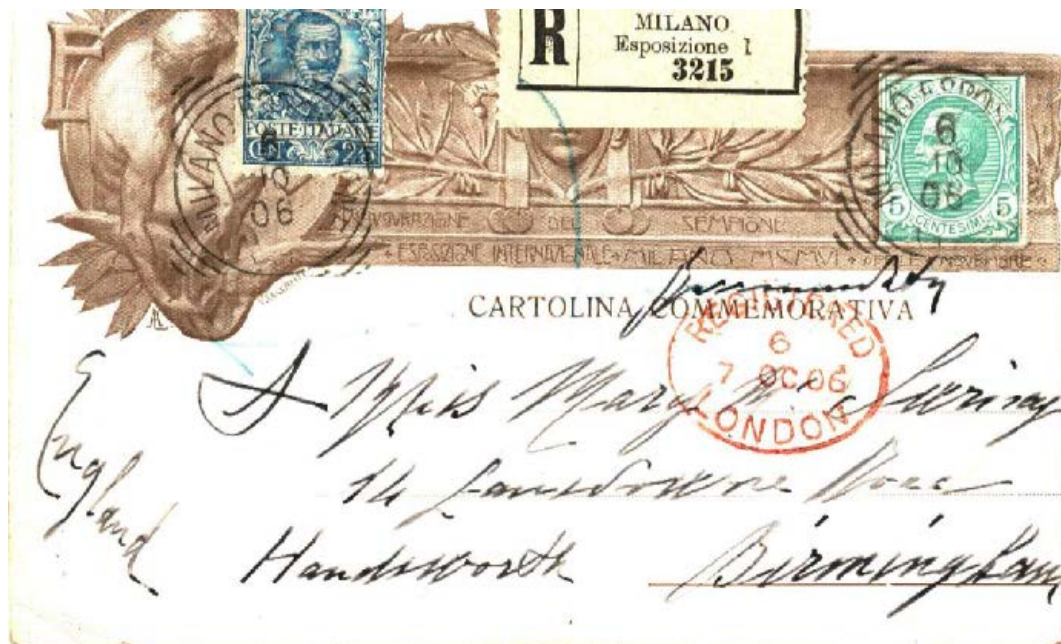 R
MILANO
Esposizione 1
3215
POSTE ITALIANE
CEN. 25
MILANO
6
10
06
MILANO
6
10
06
5 CENTESIMI 5
INAUGURAZIONE DEL SEMPIONE
ESPOSIZIONE INTERNAZIONALE MILANO MCMVI
CARTOLINA COMMEMORATIVA
REGISTERED
6
7 OC 06
LONDON
England
Miss Mary
14 Lansdowne
Handsworth Birmingham